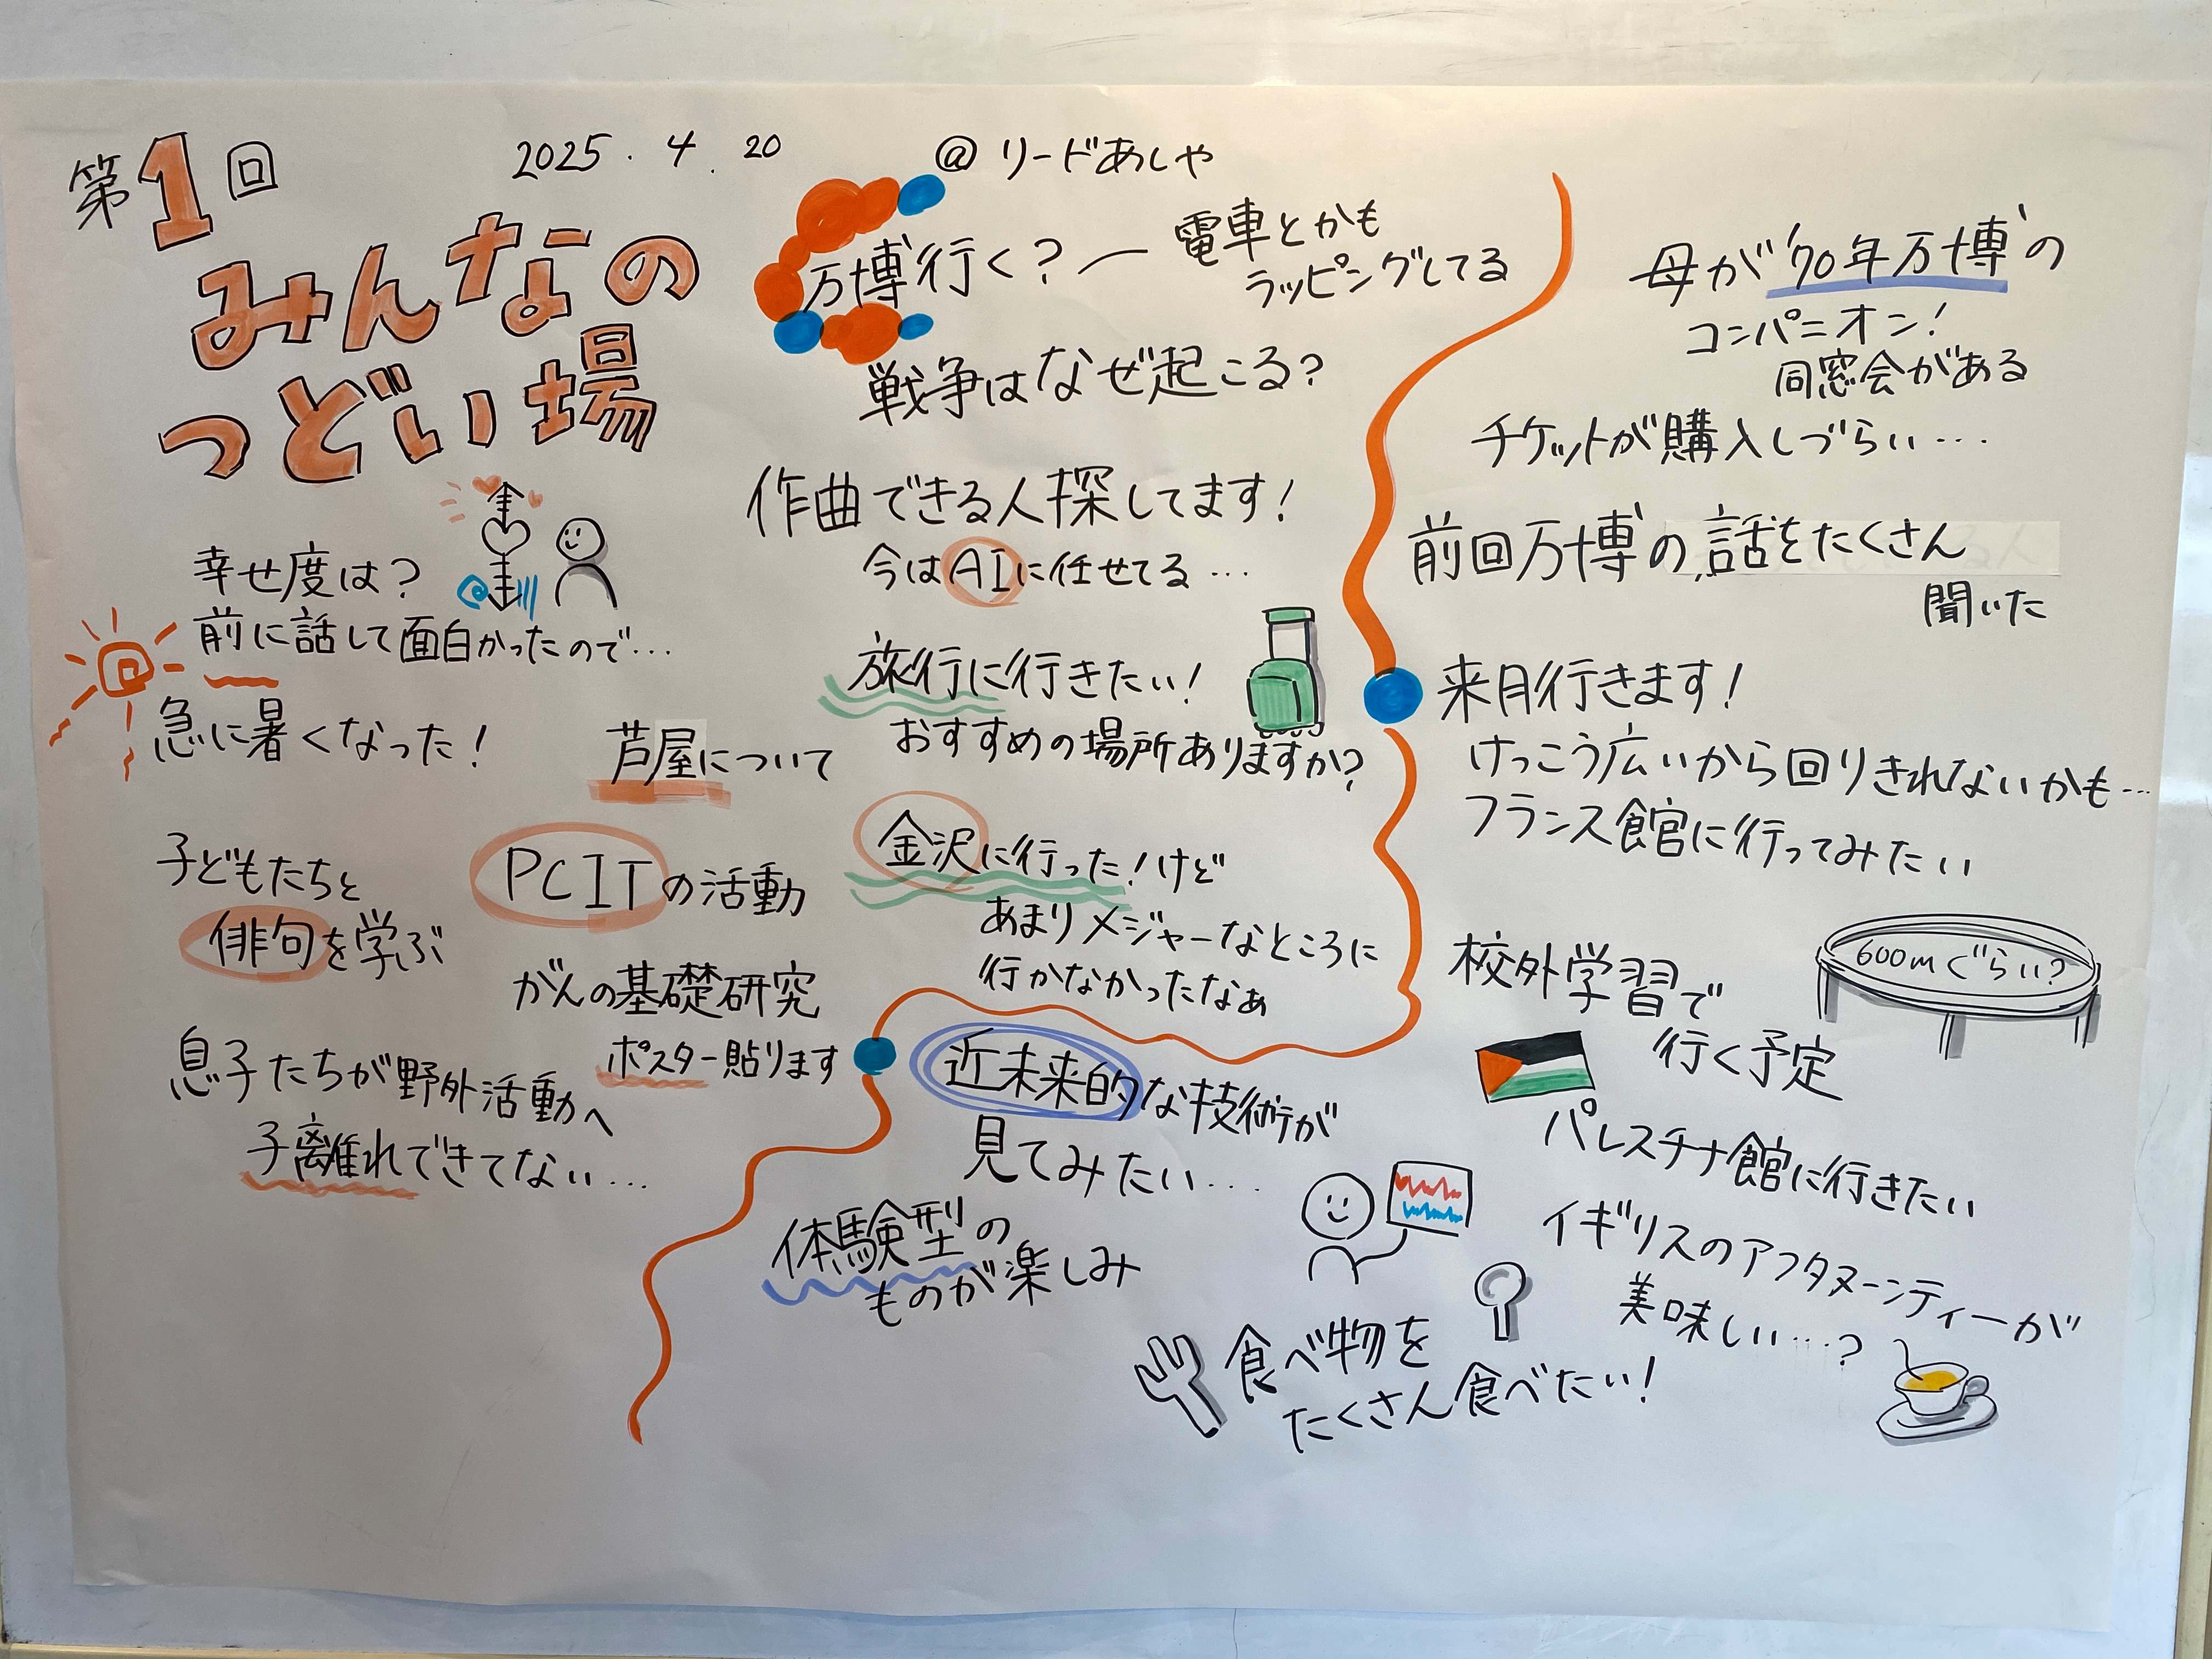 第1回
2025.4.20
@リードあしや
みんなの
つどい場
幸せ度は？
前に話して面白かったので…
急に暑くなった！
芦屋について
子どもたちと
俳句を学ぶ
PCITの活動
がんの基礎研究
ポスター貼ります
息子たちが野外活動へ
子離れできてない…
万博行く？
電車とかも
ラッピングしてる
戦争はなぜ起こる？
作曲できる人探してます！
今はAIに任せてる…
旅行に行きたい！
おすすめの場所ありますか？
金沢に行った！けど
あまりメジャーなところに
行かなかったなぁ
母が'70年万博の
コンパニオン！
同窓会がある
チケットが購入しづらい…
前回万博の話をたくさん
聞いた
来月行きます！
けっこう広いから回りきれないかも…
フランス館に行ってみたい
校外学習で
行く予定
600mぐらい？
パレスチナ館に行きたい
イギリスのアフタヌーンティーが
美味しい…？
近未来的な技術が
見てみたい…
体験型の
ものが楽しみ
食べ物を
たくさん食べたい！